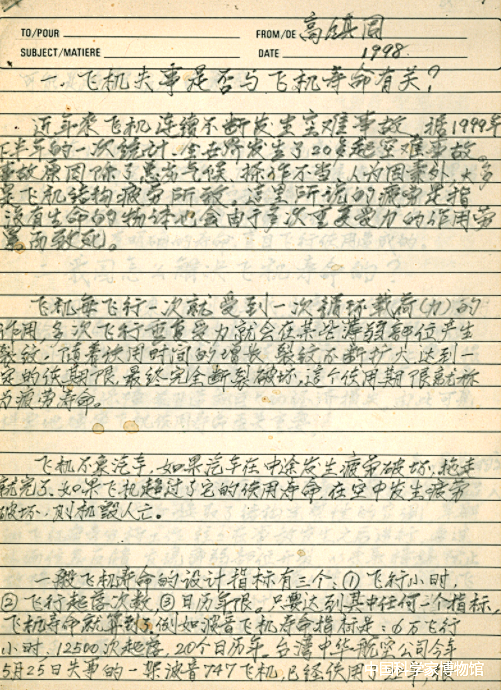 TO/POUR
FROM/DE 高镇同
SUBJECT/MATIERE
DATE 1998
一、飞机失事是否与飞机寿命有关?
近年来飞机连续不断发生空难事故。据1999年
上半年的一次统计,全世界发生了20多起空难事故。
事故原因除了恶劣气候、操作不当、人为因素外,大多
是飞机结构疲劳所致。这里所说的疲劳是指
没有生命的物体也会由于多次重复受力的作用劳
累而致死。
飞机每飞行一次就受到一次循环载荷(力)的
作用,多次飞行重复受力就会在某些薄弱部位产生
裂纹,随着使用时间的增长,裂纹不断扩大达到一
定的使用期限,最终完全断裂破坏,这个使用期限就称
为疲劳寿命。
飞机不象汽车,如果汽车在中途发生疲劳破坏,拖走
就完了。如果飞机超过了它的使用寿命,在空中发生疲劳
破坏,则机毁人亡。
一般飞机寿命的设计指标有三个:①飞行小时,
②飞行起落次数,③日历年限。只要达到其中任何一个指标,
飞机寿命就算到了,例如波音飞机寿命指标是:6万飞行
小时,12500次起落,20个日历年。台湾中华航空公司今年
5月25日失事的一架波音747飞机,已经使用
中国科学家博物馆